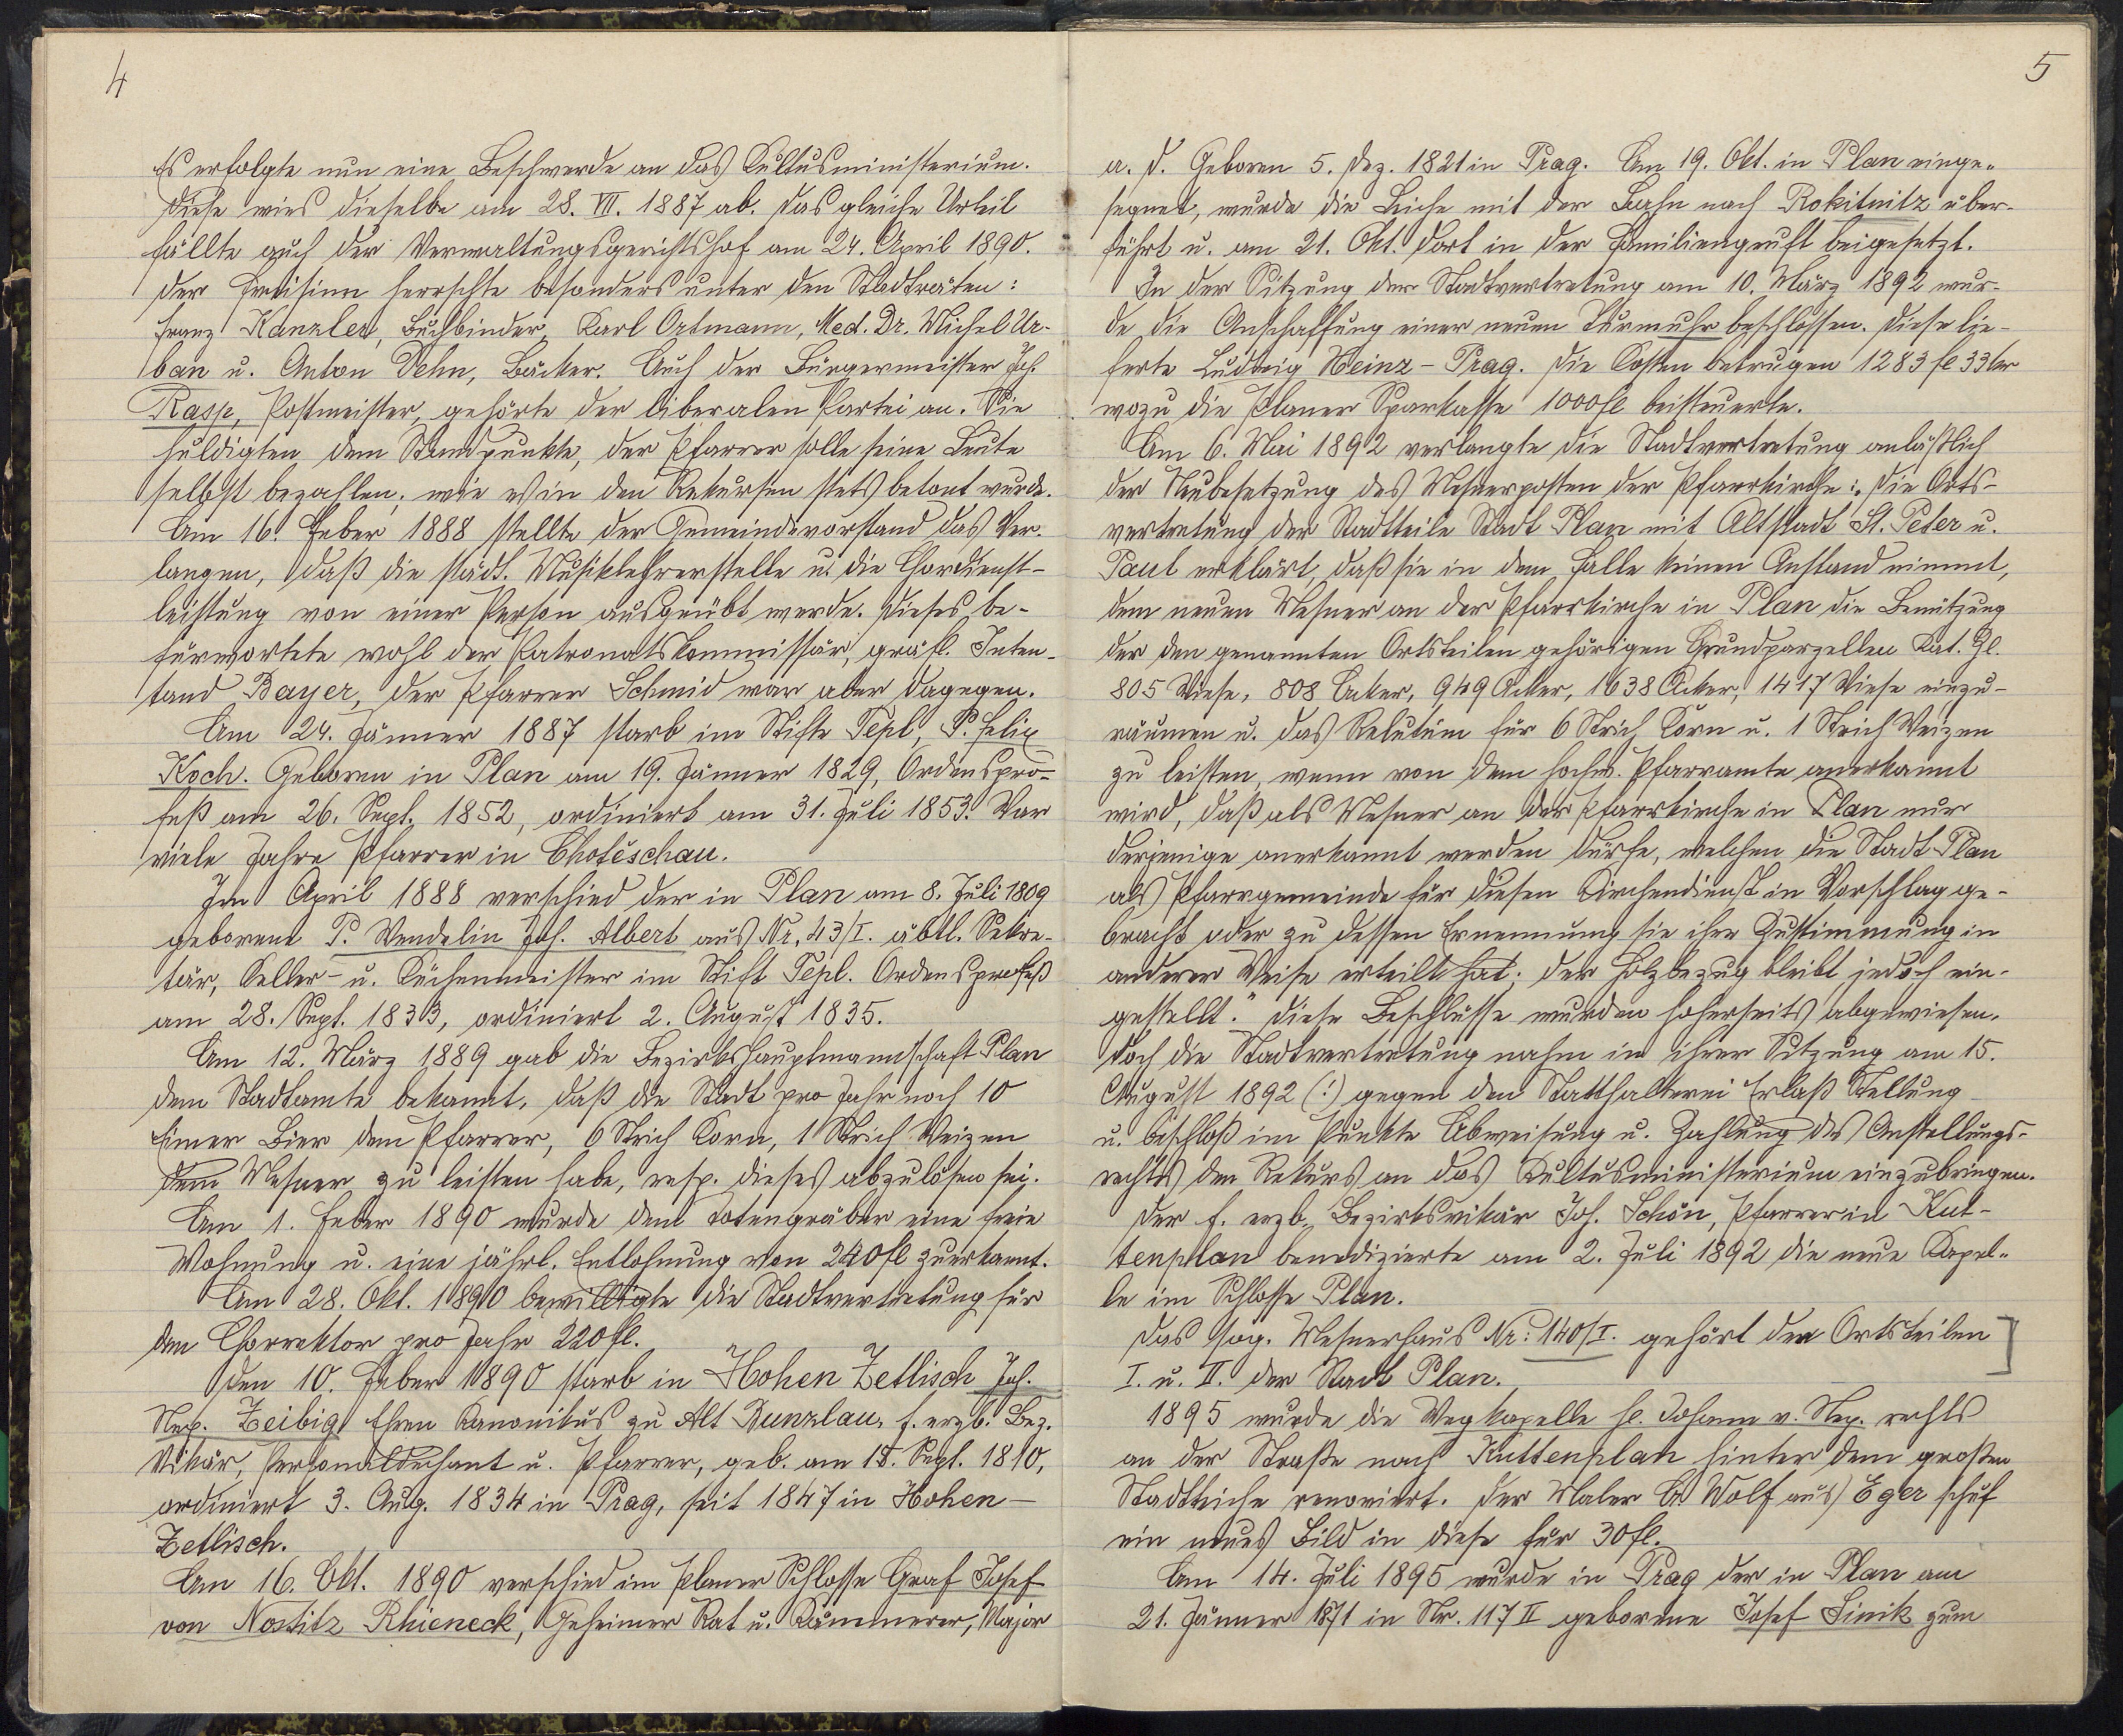 4
Es erfolgte nun eine Beschwerde an das Kultusministerium.
Diese wies dieselbe am 28. VII. 1887 ab. Das gleiche Urteil
fällte auch der Verwaltungsgerichtshof am 24. April 1890.
Der Freisinn herrschte besonders unter den Stadträten:
Franz Kanzler, Buchbinder, Karl Ortmann, Med. Dr. Michel Ur-
ban u. Anton Dehn, Bäcker. Auch der Bürgermeister Joh.
Rasp, Postmeister, gehörte der liberalen Partei an. Sie
huldigten dem Standpunkte, der Pfarrer solle seine Leute
selbst bezahlen, wie es in den Rekursen stets betont wurde.
Am 16. Feber 1888 stellte der Gemeindevorstand das Ver-
langen, daß die städt. Musiklehrerstelle u. die Chordienst-
leistung von einer Person ausgeübt werde. Dieses be-
fürwortete wohl der Patronatskommissär, gräfl. Inten-
tand Bayer, der Pfarrer Schmid war aber dagegen.
Am 24. Jänner 1887 starb im Stifte Tepl, P. Felix
Koch. Geboren in Plan am 19. Jänner 1829, Ordenspro-
feß am 26. Sept. 1852, ordiniert am 31. Juli 1853. War
viele Jahre Pfarrer in Chotěschau.
Im April 1888 verschied der in Plan am 8. Juli 1809
geborene P. Wendelin Joh. Albert aus Nr. 43/I. äbtl. Sekre-
tär, Keller- u. Küchenmeister im Stift Tepl. Ordensprofeß
am 28. Sept. 1833, ordiniert 2. August 1835.
Am 12. März 1889 gab die Bezirkshauptmannschaft Plan
dem Stadtamte bekannt, daß die Stadt pro Jahr noch 10
Eimer Bier dem Pfarrer, 6 Strich Korn, 1 Strich Weizen
dem Mesner zu leisten habe, resp. dieses abzulösen sei.
Am 1. Feber 1890 wurde dem Totengräber eine freie
Wohnung u. eine jährl. Entlohnung von 240 fl zuerkannt.
Am 28. Okt. 1890 bewilligte die Stadtvertretung für
den Chorrektor pro Jahr 220 fl.
Den 10. Feber 1890 starb in Hohen Zetlisch Joh.
Nep. Zeibig, Ehren Kanonikus zu Alt Bunzlau, f. erzb. Bez.
Vikär, Personaldechant u. Pfarrer, geb. am 18. Sept. 1810,
ordiniert 3. Aug. 1834 in Prag, seit 1847 in Hohen-
Zetlisch.
Am 16. Okt. 1890 verschied im Planer Schlosse Graf Josef
von Nostitz Rhieneck, Geheimer Rat u. Kämmerer, Major
5
a. D. Geboren 5. Dez. 1821 in Prag. Am 19. Okt. in Plan einge-
segnet, wurde die Leiche mit der Bahn nach Rokitnitz über-
führt u. am 21. Okt. dort in der Familiengruft beigesetzt.
In der Sitzung der Stadtvertretung am 10. März 1892 wur-
de die Anschaffung einer neuen Turmuhr beschlossen. Diese lie-
ferte Ludwig Heinz - Prag. Die Kosten betrugen 1283 fl 33 kr
wozu die Planer Sparkasse 1000 fl beisteuerte.
Am 6. Mai 1892 verlangte die Stadtvertretung anläßlich
der Neubesetzung des Mesnerposten der Pfarrkirche: „Die Orts-
vertretung der Stadtteile Stadt Plan mit Altstadt St. Peter u.
Paul erklärt, daß sie in dem Falle keinen Anstand nimmt,
dem neuen Mesner an der Pfarrkirche in Plan die Benützung
der den genannten Ortsteilen gehörigen Grundparzellen Kat. Zl.
805 Wiese, 808 Acker, 949 Acker, 1638 Acker, 1417 Wiese einzu-
räumen u. das Relutum für 6 Strich Korn u. 1 Strich Weizen
zu leisten, wenn von dem hochw. Pfarramte anerkannt
wird, daß als Mesner an der Pfarrkirche in Plan nur
derjenige anerkannt werden dürfe, welchen die Stadt Plan
als Pfarrgemeinde für diesen Kirchendienst in Vorschlag ge-
bracht oder zu dessen Ernennung sie ihre Zustimmung in
anderer Weise erteilt hat; der Holzbezug bleibt jedoch ein-
gestellt." Diese Beschlüsse wurden hoherseits abgewiesen.
Doch die Stadtvertretung nahm in ihrer Sitzung am 15.
August 1892 (!) gegen den Statthalterei Erlaß Stellung
u. beschloß im Punkte Abweisung u. Zahlung des Anstellungs-
rechts den Rekurs an das Kultusministerium einzubringen.
Der f. erzb. Bezirksvikär Joh. Schön, Pfarrer in Kut-
tenplan benedizierte am 2. Juli 1892 die neue Kapel-
le im Schlosse Plan.
Das sog. Mesnerhaus Nr: 140/I. gehört den Ortsteilen
I. u. II. der Stadt Plan.
1895 wurde die Wegkapelle hl. Johann v. Nep. rechts
an der Straße nach Kuttenplan hinter dem großen
Stadtteiche renoviert. Der Maler Wolf aus Eger schuf
ein neues Bild in diese für 30 fl.
Am 14. Juli 1895 wurde in Prag der in Plan am
21. Jänner 1871 in Nr. 117 II geborene Josef Linik zum